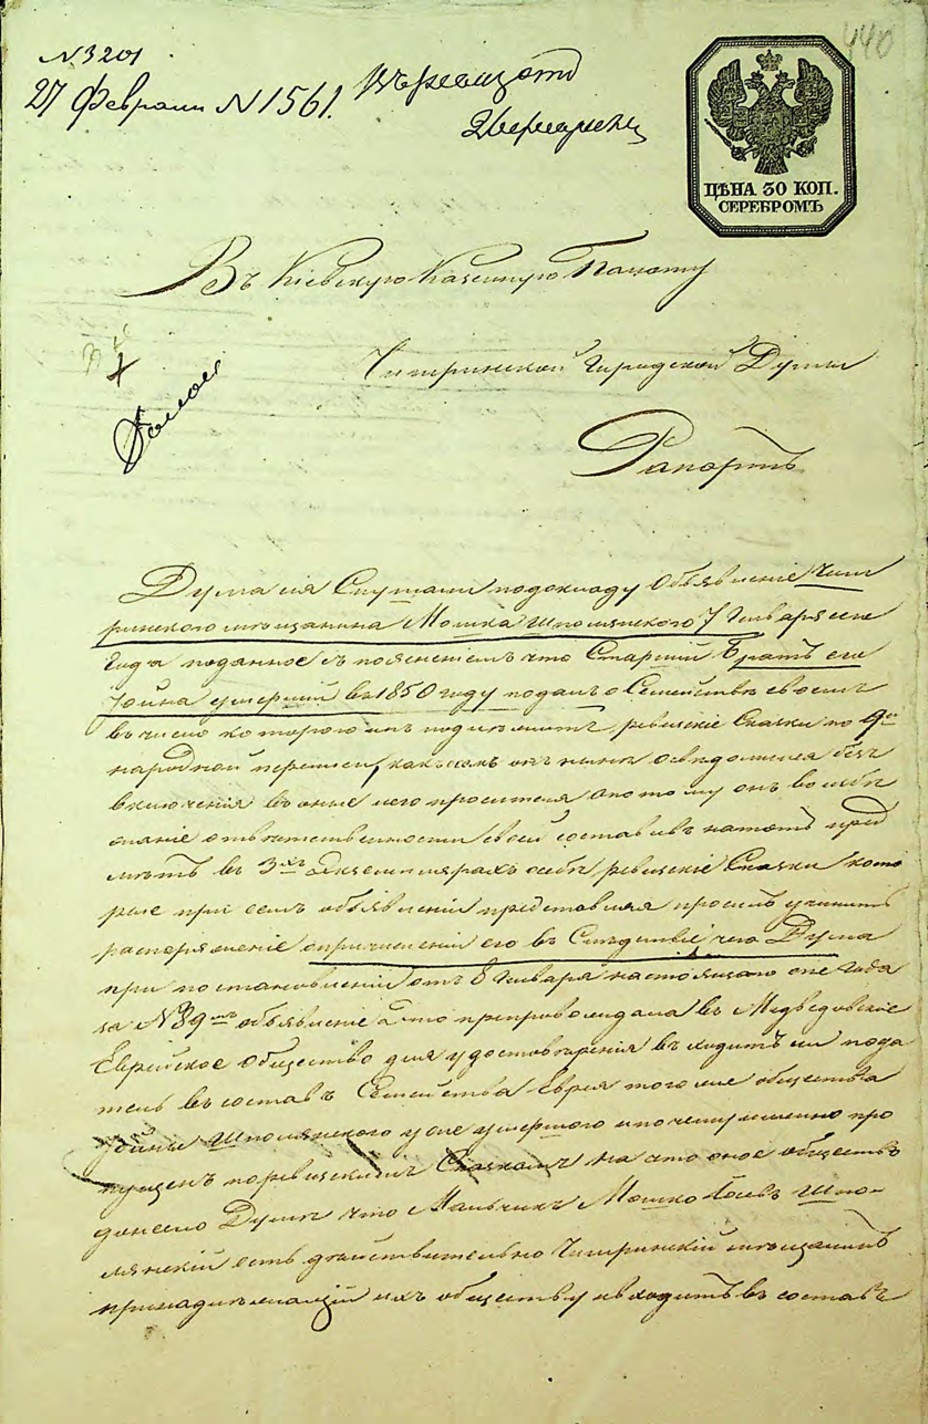 № 3201
27 Февраля № 1561.
440
ЦѢНА 30 КОП.
СЕРЕБРОМЪ
Въ Кіевскую Казенную Палату
Чигринской Городской Думы
Рапортъ
Дума сія Слушали подокладу Объявленіе Чиг
ринского мѣщанина Мошка Шполянского 7 Генваря сего
Года поданное съ поясненіемъ что Старшій Братъ его
Іойна умершій въ 1850 году подалъ о Семействѣ своемъ
въ число которого онъ подлежитъ ревизскіе Сказки по 9й
народной переписи, какъ онъ нынѣ освѣдомился безъ
включенія въ оные его просителя а потому онъ во избѣ
жаніе отвѣтственности своей составивъ на тотъ пред
мѣтъ въ 3хъ Экземплярахъ особѣ ревизскіе Сказки кото
рые при семъ объявленіи представляя просилъ учинить
распоряженіе о причисленіи его въ Слѣдствіе чего Дума
при постановленіи отъ 8 Генваря настоящаго оне Года
за № 39мъ объявленіе это препровождала въ Медведовское
Еврейское Общество для удостовѣренія входитъ ли пода
тель въ составъ Семейства Еврея того же общества
Іойны Шполянского уже умершого и почему именно про
пущенъ по ревизскимъ Сказкамъ на что оное общество
донесло Думѣ что Мальчикъ Мошко Шпо-
лянскій есть дѣйствительно Чигринскій мѣщанинъ
принадлежащій ихъ обществу и входитъ въ составъ